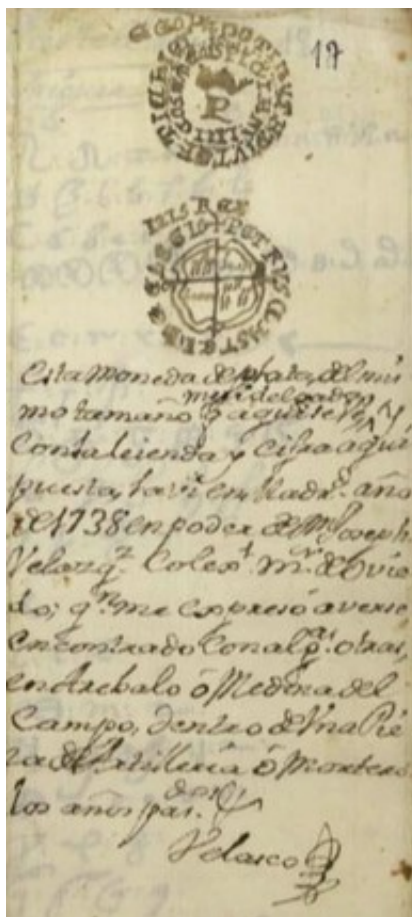 17
P
Esta Moneda de plata, del mis
mo tamaño q aqui se ve, y
mui delgada
Con la leienda y cifra aqui
puesta, la vi en Madrd. año
de 1738 en poder de Dn Joseph
Velazqz. Colexl. Mr. de Ovie
do; qn. me expresó averse
encontrado con algs. otras,
en Arebalo ó Medina del
Campo, dentro de Vna Pie
za de Artilleria ó Mortero
los años pasdos.
Velasco